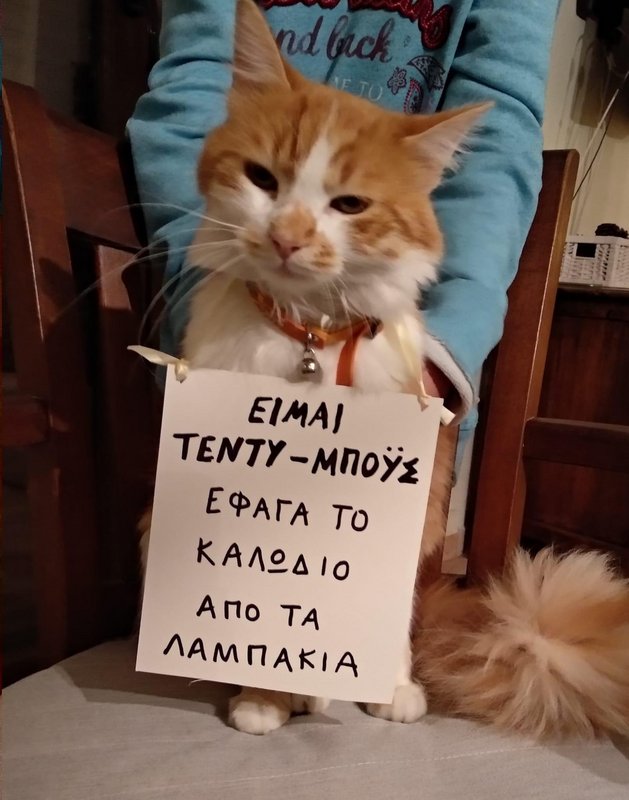 nd back
ME TO
ΕΙΜΑΙ
ΤΕΝΤΥ-ΜΠΟΫΣ
ΕΦΑΓΑ ΤΟ
ΚΑΛΩΔΙΟ
ΑΠΟ ΤΑ
ΛΑΜΠΑΚΙΑ